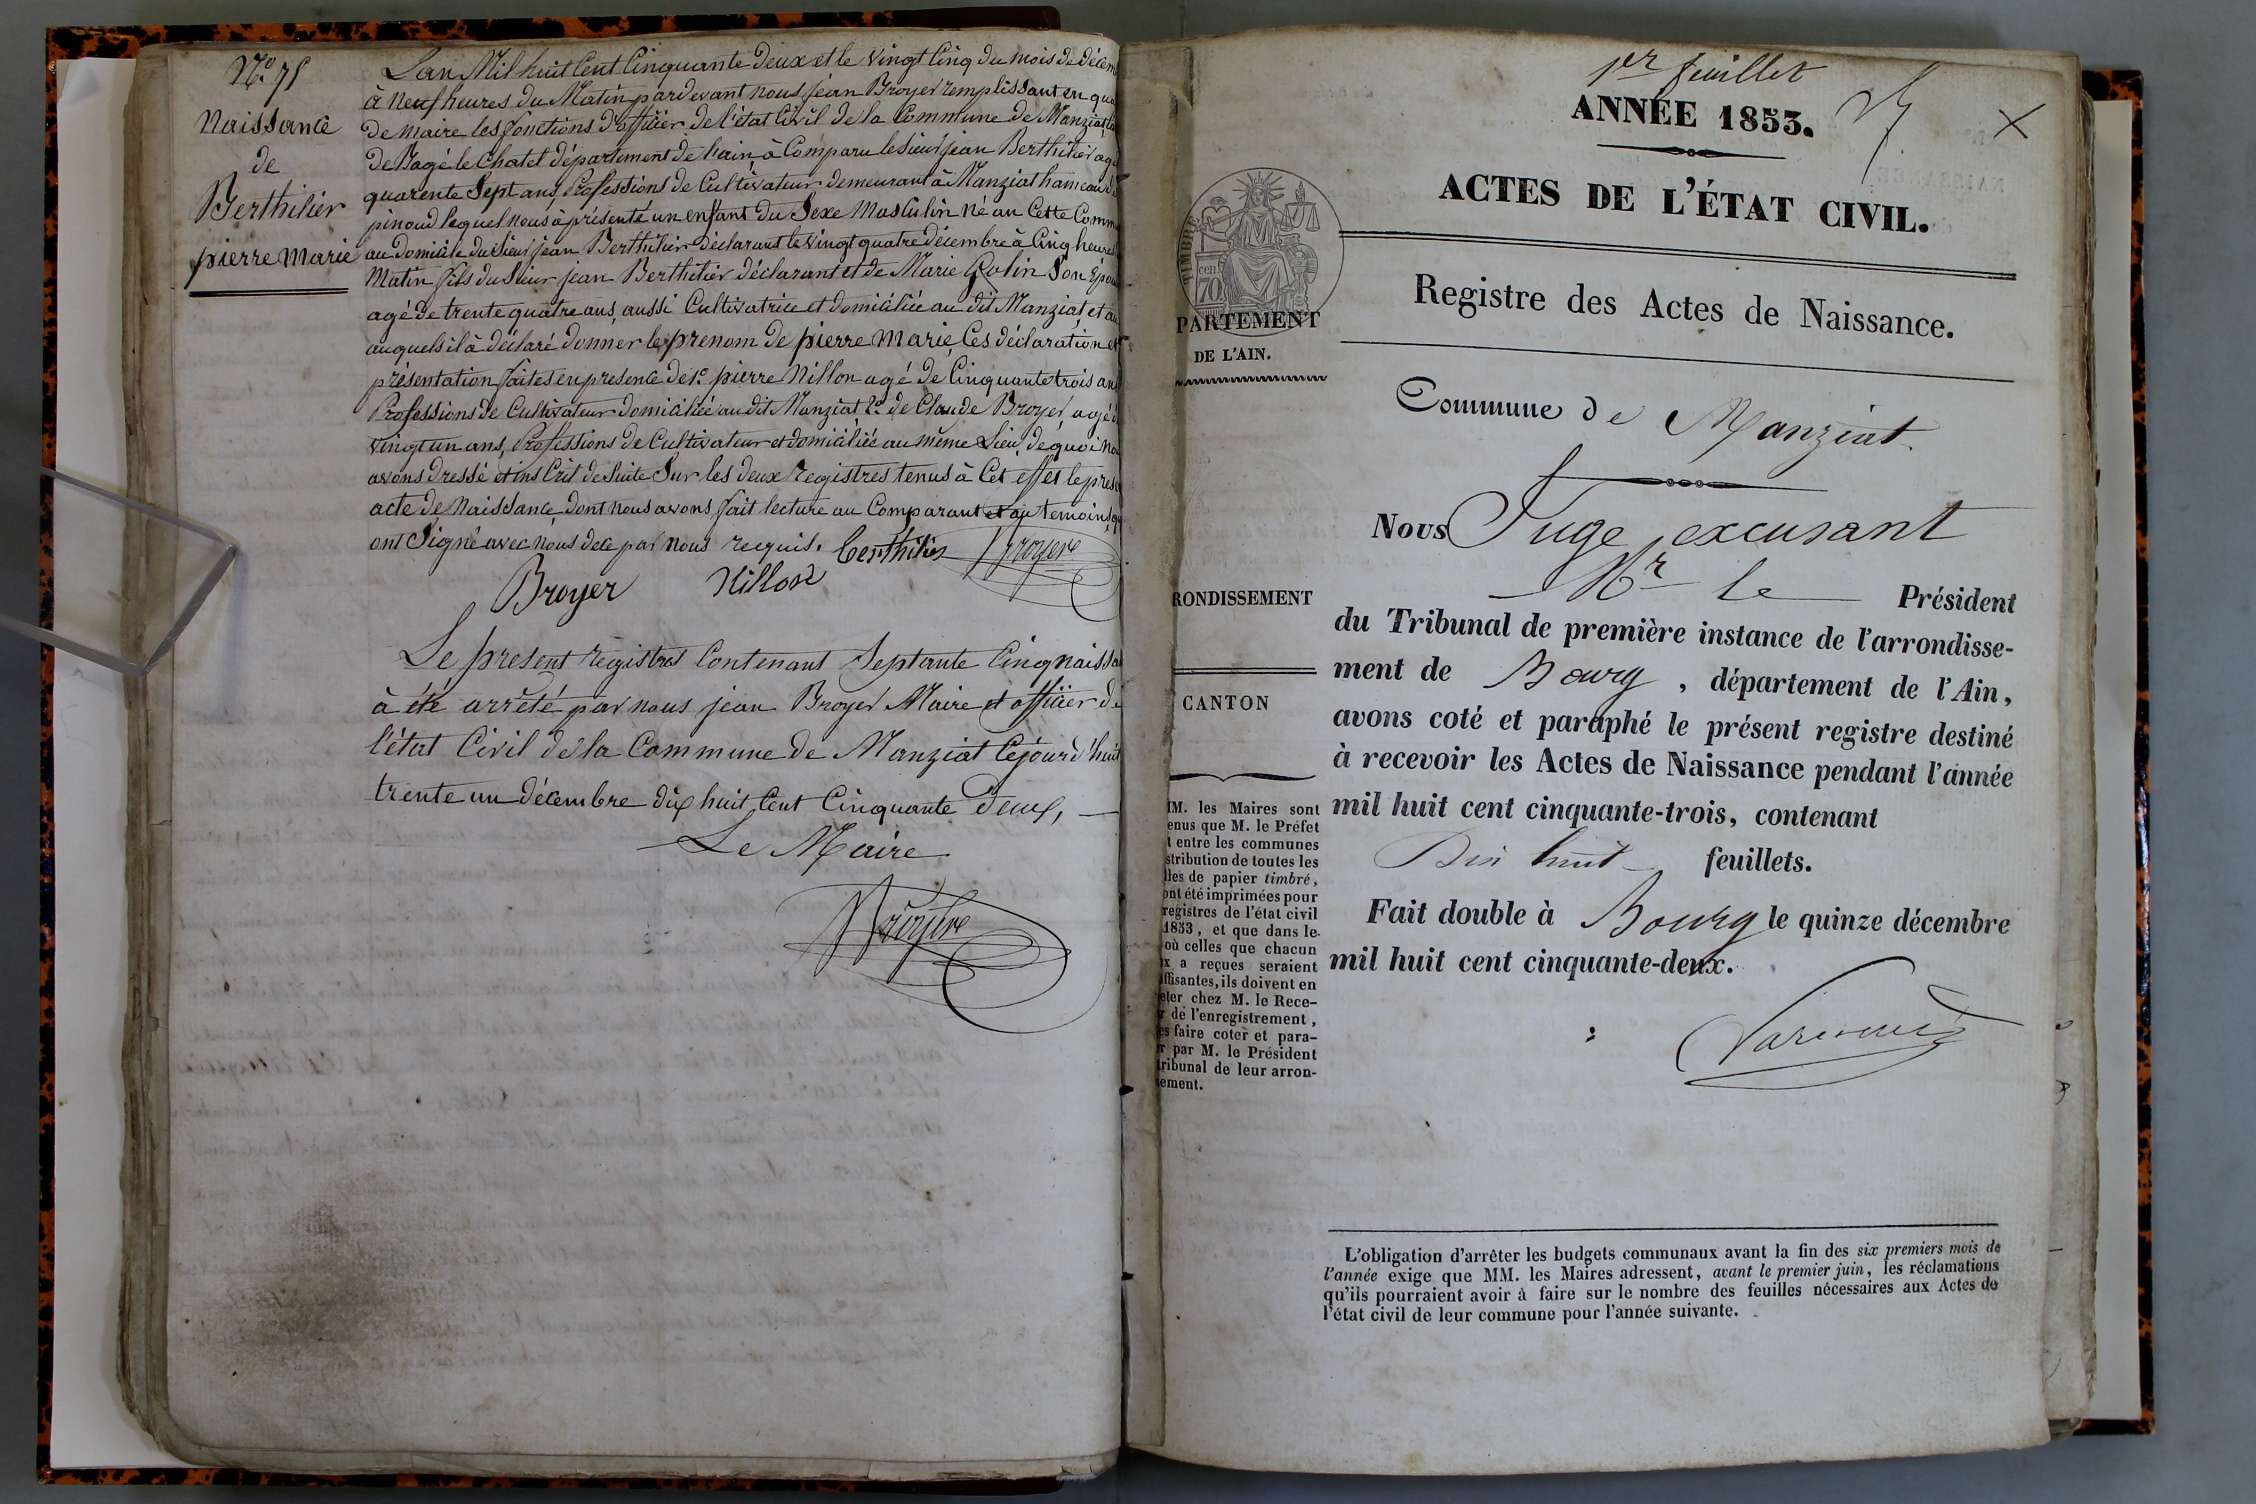 N.° 75
Naissance
de
Berthilier
pierre Marie
Lan Mil huit Cent Cinquante Deux et le vingt Cinq du mois de décem
à Neuf heures du Matin par devant nous jean Broyer remplissant en qua
De maire les fonctions d'officier de l'état Civil de la Commune de Manziat
de Bagé le Chatel département de l'ain, à Comparu le sieur jean Berthilier agé
quarente Sept ans, Professions de Cultivateur demeurant à Manziat hameau de
pinoud lequel nous à présenté un enfant du Sexe Masculin Né au Cette Comm
au domicile du sieur jean Berthilier déclarant le vingt quatre décembre à Cinq heures
Matin fils du Sieur jean Berthilier déclarant et de Marie Son Epou
agé de trente quatre ans, aussi Cultivatrice et domiciliée au dit Manziat et
auquels il à déclaré donner les prenom de pierre Marie, Ces déclaration et
présentation faites en presence de 1.° pierre Nillon agé de Cinquante trois ans
Professions de Cultivateur domiciliée au dit Manziat 2.° de Claude Broyer, agé d
vingt un ans, Professions de Cultivateur et domiciliée au même Lieu, de quoi Nou
avons dressé et ins Crit de Suite Sur les deux registres tenus à Cet effet le pres
acte de Naissance, dont nous avons fait lecture au Comparant et au temoins, qu
ont Signé avec nous de ce par nous requis. berthilier Broyer
Broyer Nillon
Le present registres Contenant Septante Cinq naissa
à été arrêté par nous jean Broyer Maire et officier de
l'état Civil de la Commune de Manziat Cejourd'huit
trente un décembre dix huit Cent Cinquante Deux,
Le Maire
Broyer
1er feuillet
ANNÉE 1853.
ACTES DE L'ÉTAT CIVIL.
Registre des Actes de Naissance.
TIMBRE
cen
70
PARTEMENT
DE L'AIN.
Commune de Manziat
Nous Juge excusant
Mr le Président
RONDISSEMENT
du Tribunal de première instance de l'arrondisse-
ment de Bourg, département de l'Ain,
CANTON
avons coté et paraphé le présent registre destiné
à recevoir les Actes de Naissance pendant l'année
mil huit cent cinquante-trois, contenant
Dix huit feuillets.
Fait double à Bourg le quinze décembre
mil huit cent cinquante-deux.
MM. les Maires sont
enus que M. le Préfet
t entre les communes
stribution de toutes les
lles de papier timbré,
ont été imprimées pour
registres de l'état civil
1853, et que dans le
où celles que chacun
x a reçues seraient
ffisantes, ils doivent en
eter chez M. le Rece-
r de l'enregistrement,
es faire coter et para-
r par M. le Président
tribunal de leur arron-
ement.
L'obligation d'arrêter les budgets communaux avant la fin des six premiers mois de
l'année exige que MM. les Maires adressent, avant le premier juin, les réclamations
qu'ils pourraient avoir à faire sur le nombre des feuilles nécessaires aux Actes de
l'état civil de leur commune pour l'année suivante.